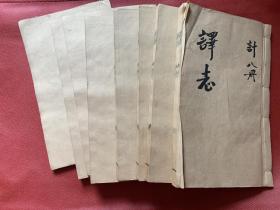 計八冊
譯志